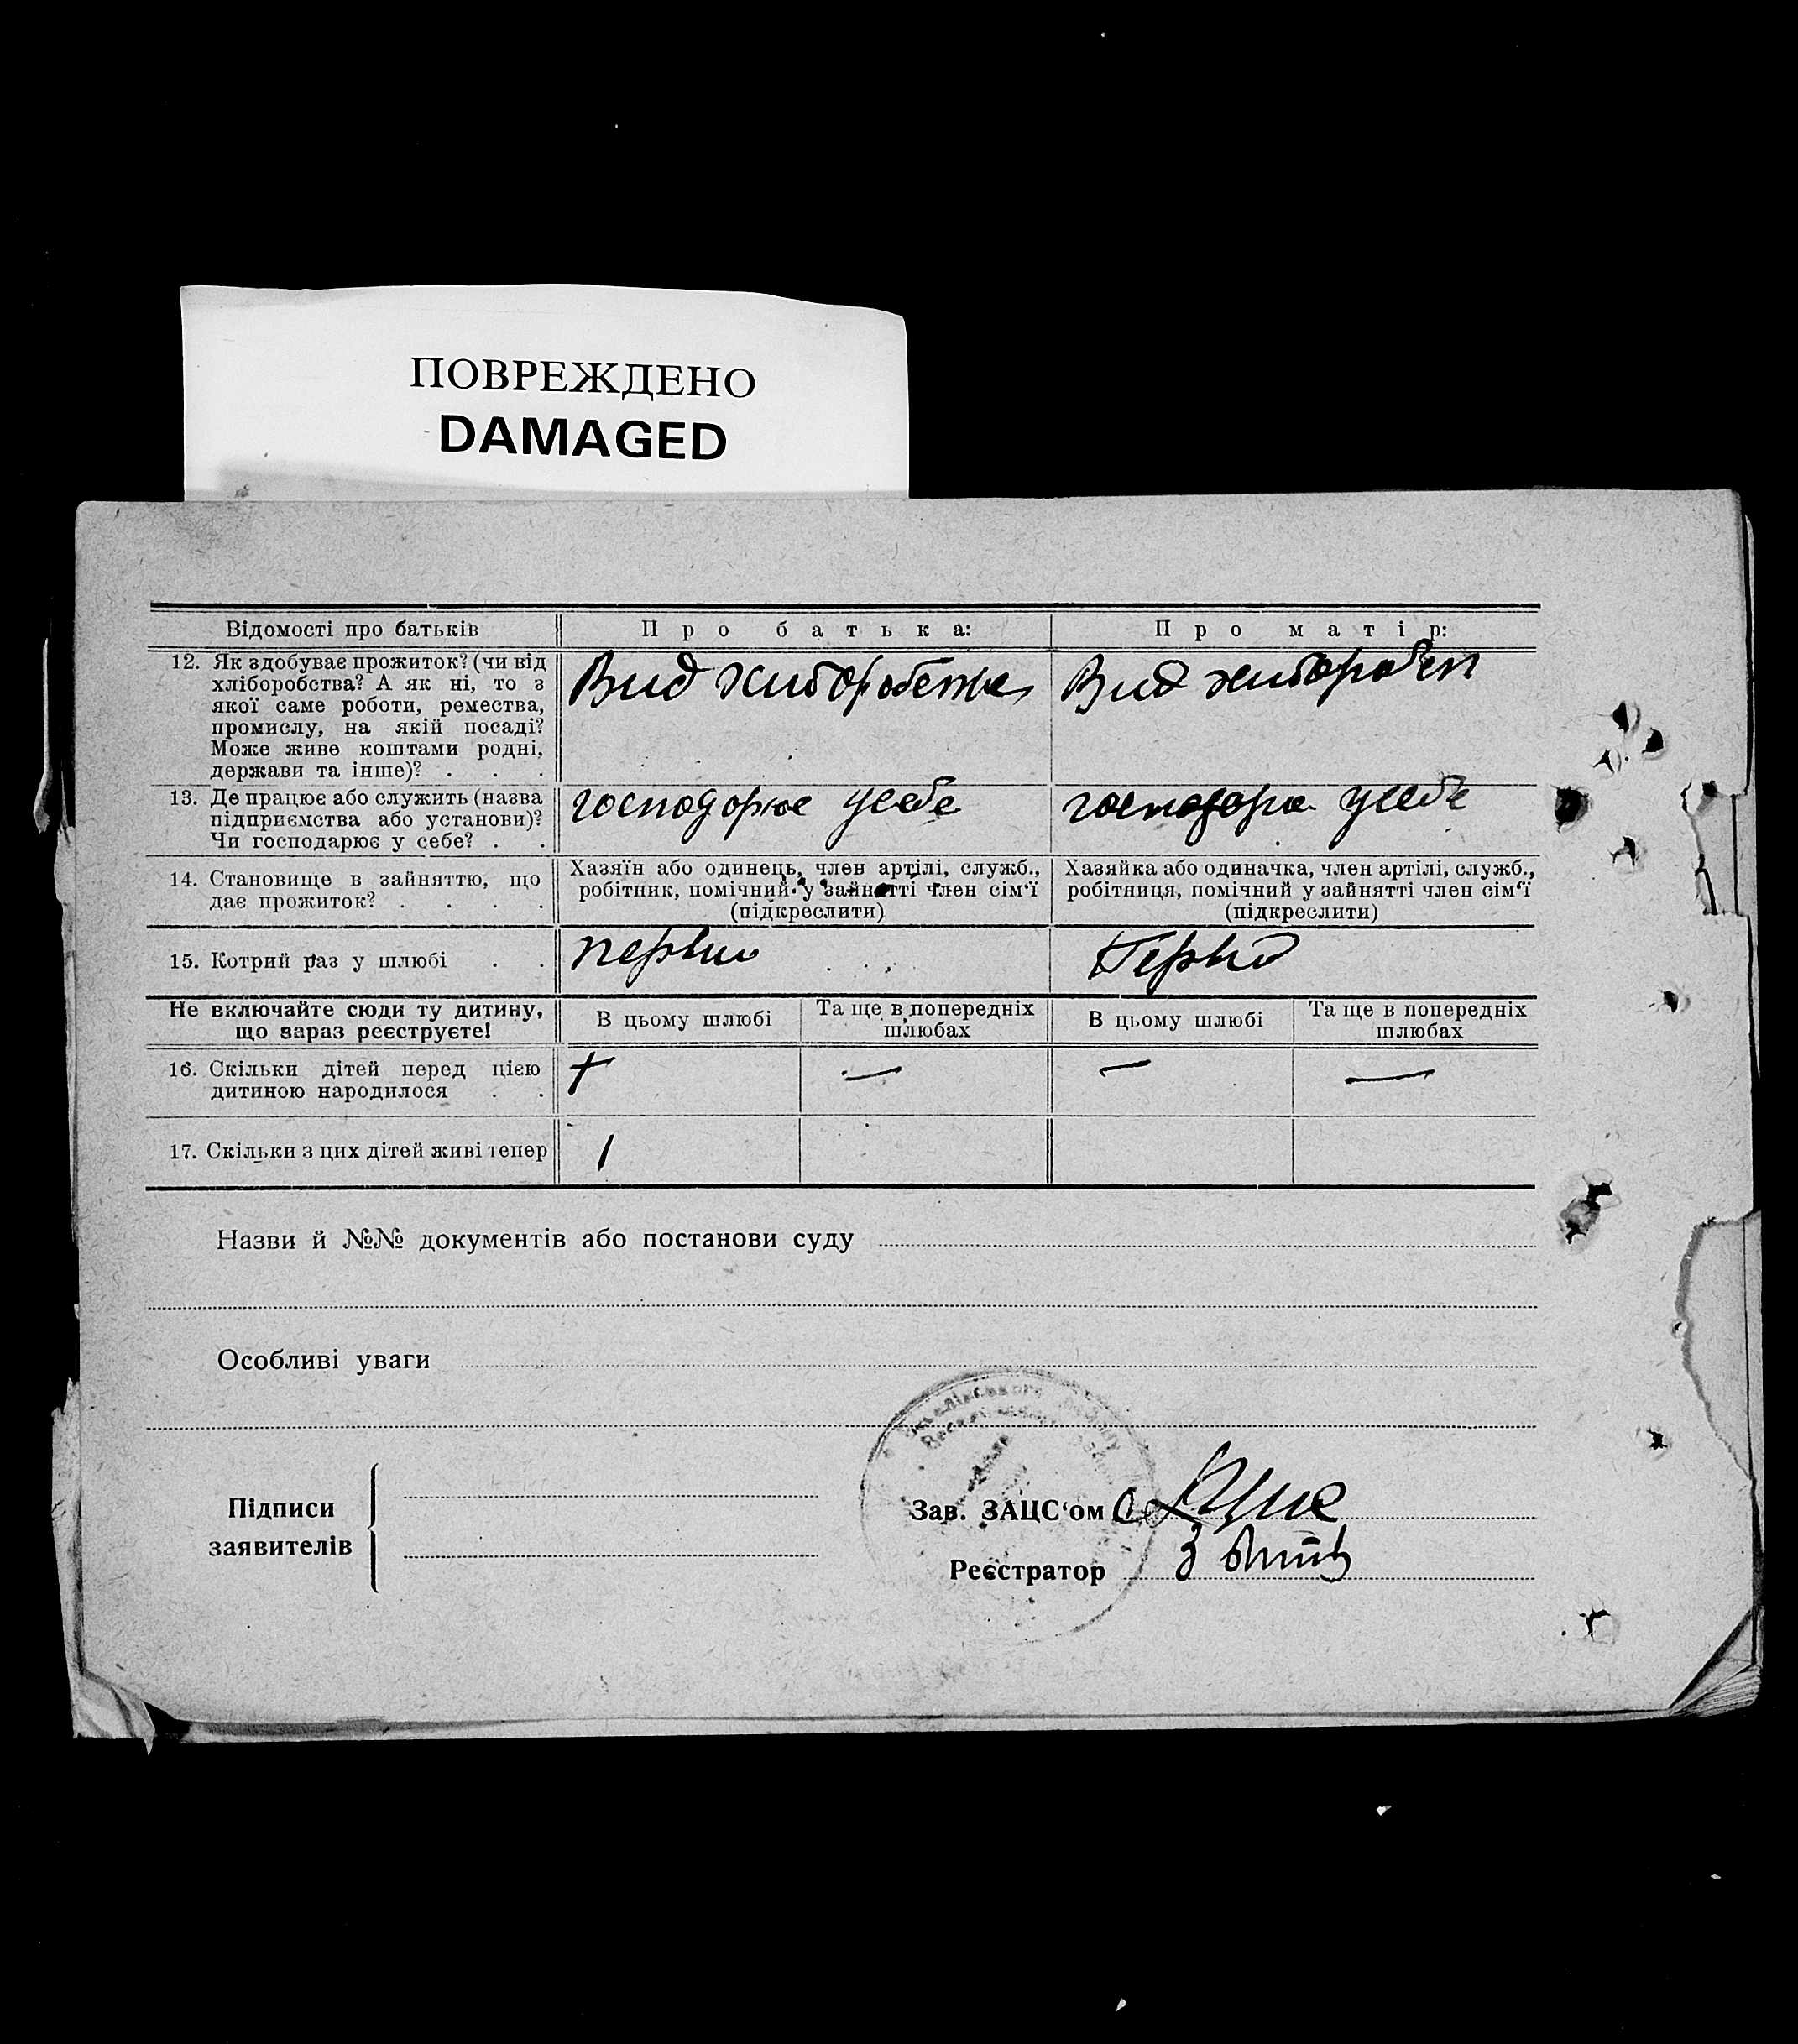 ПОВРЕЖДЕНО
DAMAGED
Відомості про батьків
Про батька:
Про матір:
12. Як здобуває прожиток? (чи від
хліборобства? А як ні, то з
якої саме роботи, ремества,
промислу, на якій посаді?
Може живе коштами родні,
держави та інше)? . . .
Вид
Вид
13. Де працює або служить (назва
підприємства або установи)?
Чи господарює у себе? . .
господорює усебе
господорює усебе
14. Становище в зайняттю, що
дає прожиток? . . . .
Хазяїн або одинець, член артілі, служб.,
робітник, помічний у зайнятті член сім‘ї
(підкреслити)
Хазяйка або одиначка, член артілі, служб.,
робітниця, помічний у зайнятті член сім‘ї
(підкреслити)
15. Котрий раз у шлюбі . .
Не включайте сюди ту дитину,
що зараз реєструєте!
В цьому шлюбі
Та ще в попередніх
шлюбах
В цьому шлюбі
Та ще в попередніх
шлюбах
16. Скільки дітей перед цією
дитиною народилося . .
+ — — —
17. Скільки з цих дітей живі тепер
1
Назви й №№ документів або постанови суду
Особливі уваги
Підписи
заявителів
Зав. ЗАЦС‘ом
Реєстратор